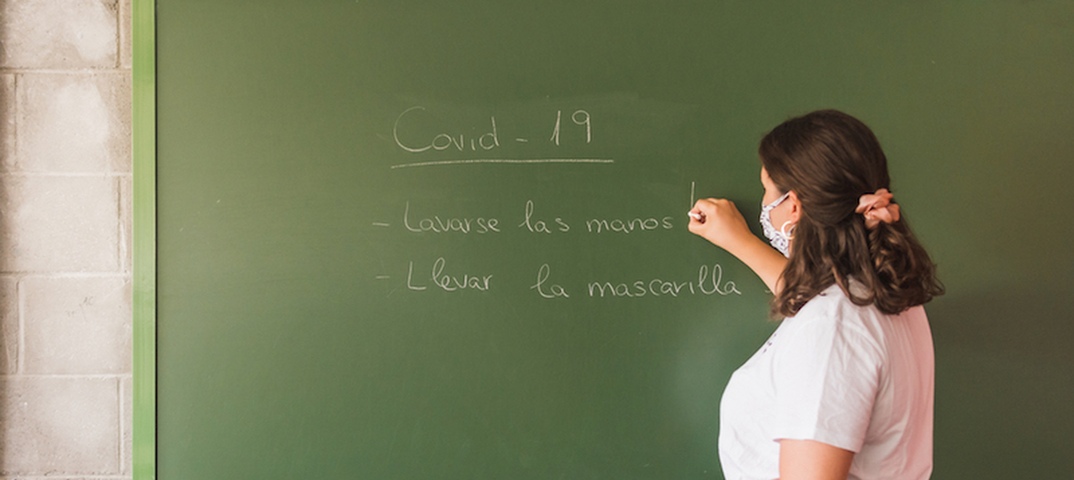 Covid - 19
- Lavarse las manos
- Llevar la mascarilla